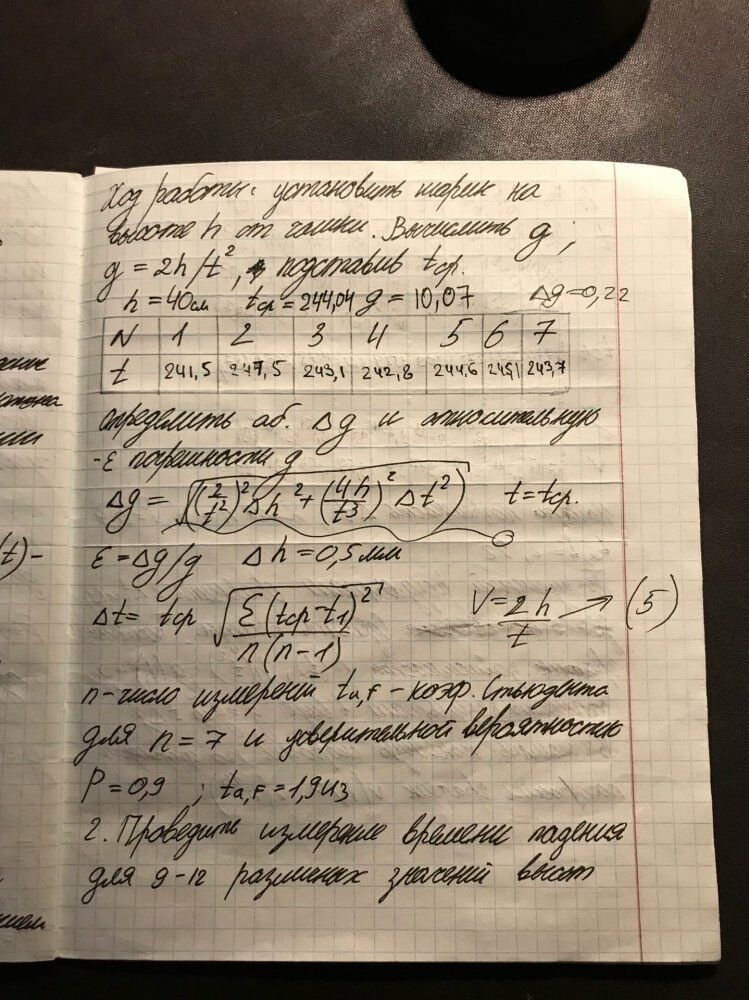 Ход работы: установить шарик на
высоте h от чашки. Вычислить g;
g = 2h/t², подставив tср.
h = 40см tср = 244,04 g = 10,07 Δg=0,22
N 1 2 3 4 5 6 7
t 241,5 247,5 243,1 242,8 244,6 245,1 243,7
определить аб. Δg и относительную
-ε погрешности g
Δg = √((2/t²)² Δh² + (4h/t³)² Δt²) t = tср.
ε = Δg/g Δh = 0,5мм
Δt = tср √(Σ(tср-t1)²/n(n-1)) V = 2h/t → (5)
n-число измерений tα,F - коэф. Стьюдента
для n = 7 и доверительной вероятностью
P = 0,9 ; tα,F = 1,943
2. Проведите измерение времени падения
для 9-12 различных значений высот
ение
t)-
нием